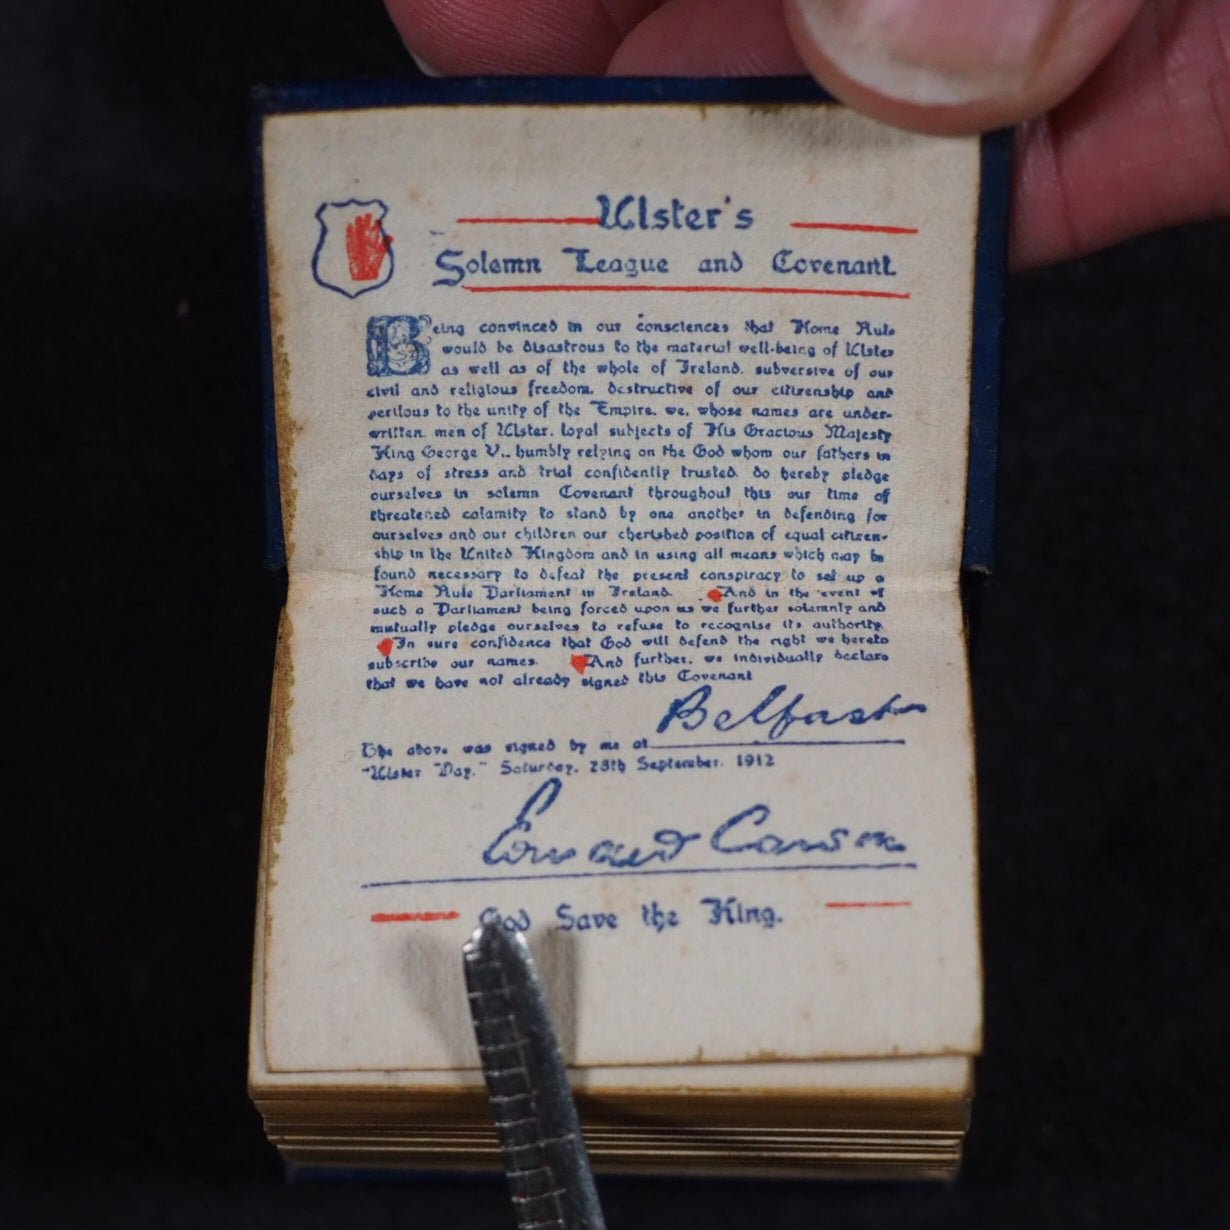 Ulster's
Solemn League and Covenant.
Being convinced in our consciences that Home Rule
would be disastrous to the material well-being of Ulster
as well as of the whole of Ireland, subversive of our
civil and religious freedom, destructive of our citizenship and
perilous to the unity of the Empire, we, whose names are under-
written, men of Ulster, loyal subjects of His Gracious Majesty
King George V., humbly relying on the God whom our fathers in
days of stress and trial confidently trusted, do hereby pledge
ourselves in solemn Covenant throughout this our time of
threatened calamity to stand by one another in defending for
ourselves and our children our cherished position of equal citizen-
ship in the United Kingdom and in using all means which may be
found necessary to defeat the present conspiracy to set up a
Home Rule Parliament in Ireland. And in the event of
such a Parliament being forced upon us we further solemnly and
mutually pledge ourselves to refuse to recognise its authority.
In sure confidence that God will defend the right we hereto
subscribe our names. And further, we individually declare
that we have not already signed this Covenant
The above was signed by me at Belfast
"Ulster Day," Saturday, 28th September, 1912
Edward Carson
God Save the King.